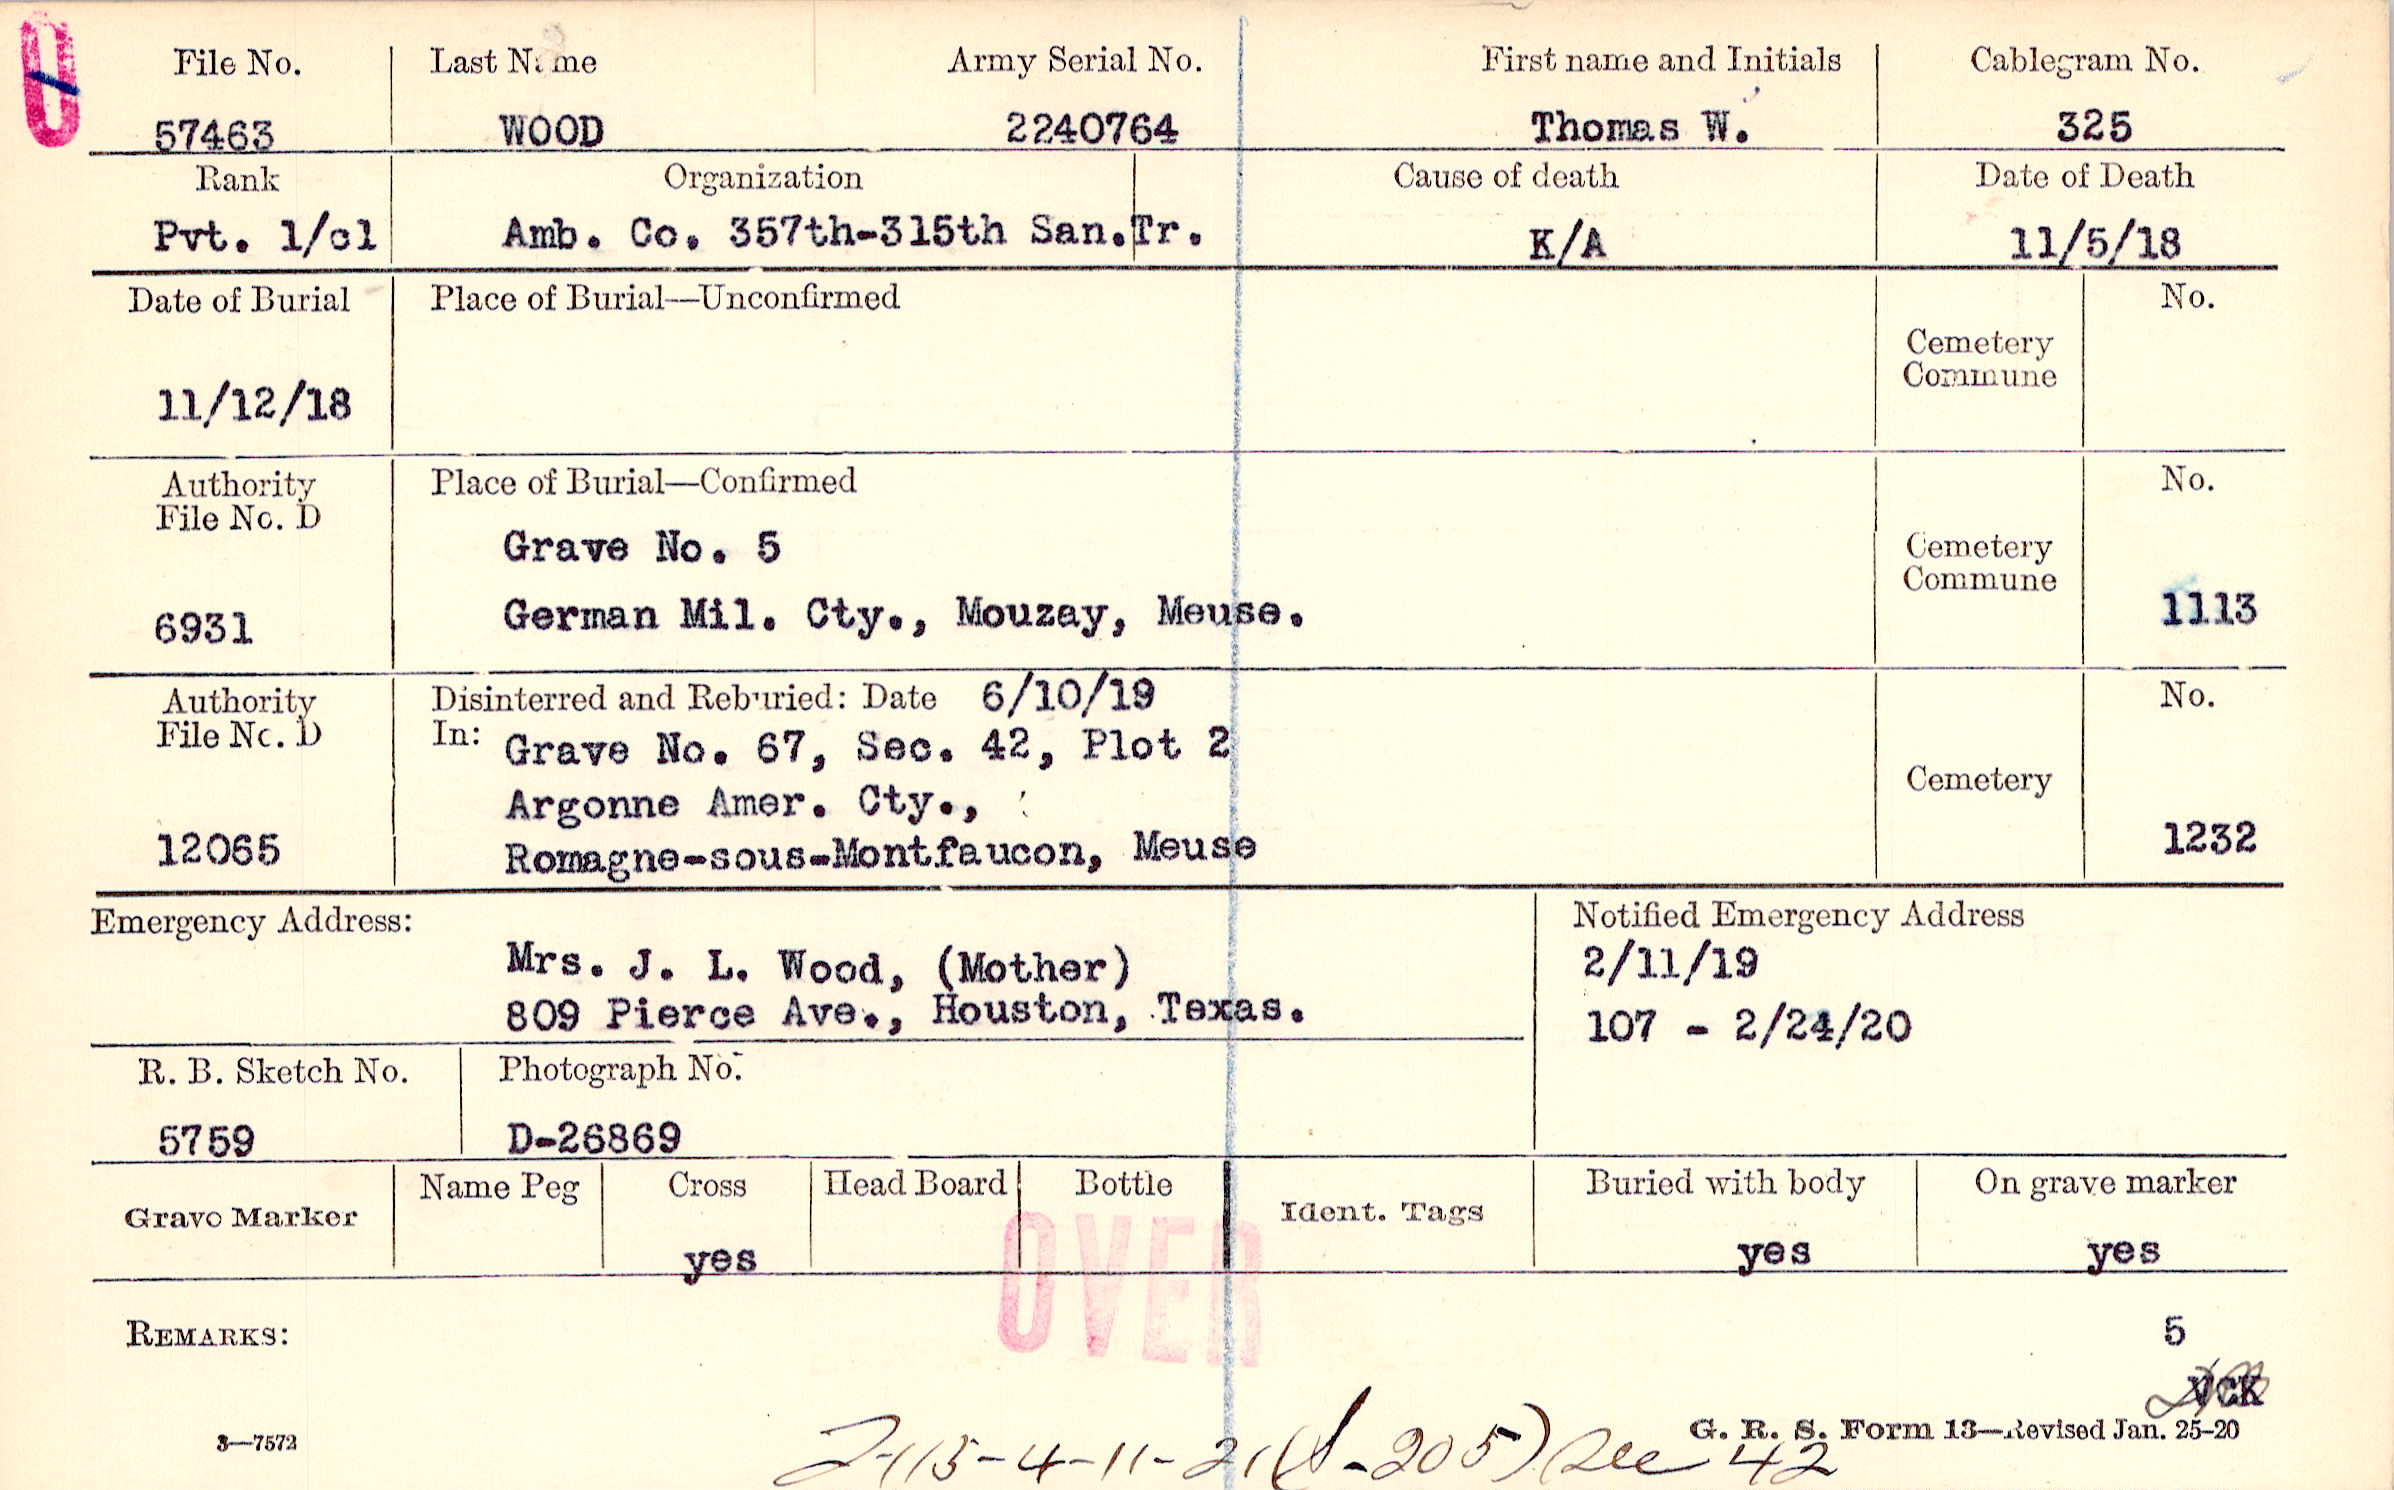 File No. Last Name Army Serial No. First name and Initials Cablegram No.
57463 WOOD 2240764 Thomas W. 325
Rank Organization Cause of death Date of Death
Pvt. 1/cl Amb. Co. 357th-315th San.Tr. K/A 11/5/18
Date of Burial Place of Burial—Unconfirmed No.
Cemetery
Commune
11/12/18
Authority Place of Burial—Confirmed No.
File No. D
Grave No. 5 Cemetery
Commune
6931 German Mil. Cty., Mouzay, Meuse. 1113
Authority Disinterred and Reburied: Date 6/10/19 No.
File No. D In: Grave No. 67, Sec. 42, Plot 2
Argonne Amer. Cty., Cemetery
12065 Romagne-sous-Montfaucon, Meuse 1232
Emergency Address: Notified Emergency Address
Mrs. J. L. Wood, (Mother) 2/11/19
809 Pierce Ave., Houston, Texas. 107 - 2/24/20
R. B. Sketch No. Photograph No.
5759 D-26869
Grave Marker Name Peg Cross Head Board Bottle Ident. Tags Buried with body On grave marker
yes yes yes
OVER
REMARKS: 5
VCK
3—7572 G. R. S. Form 13—Revised Jan. 25-20
-4-11-21 (S-205) Sec 42